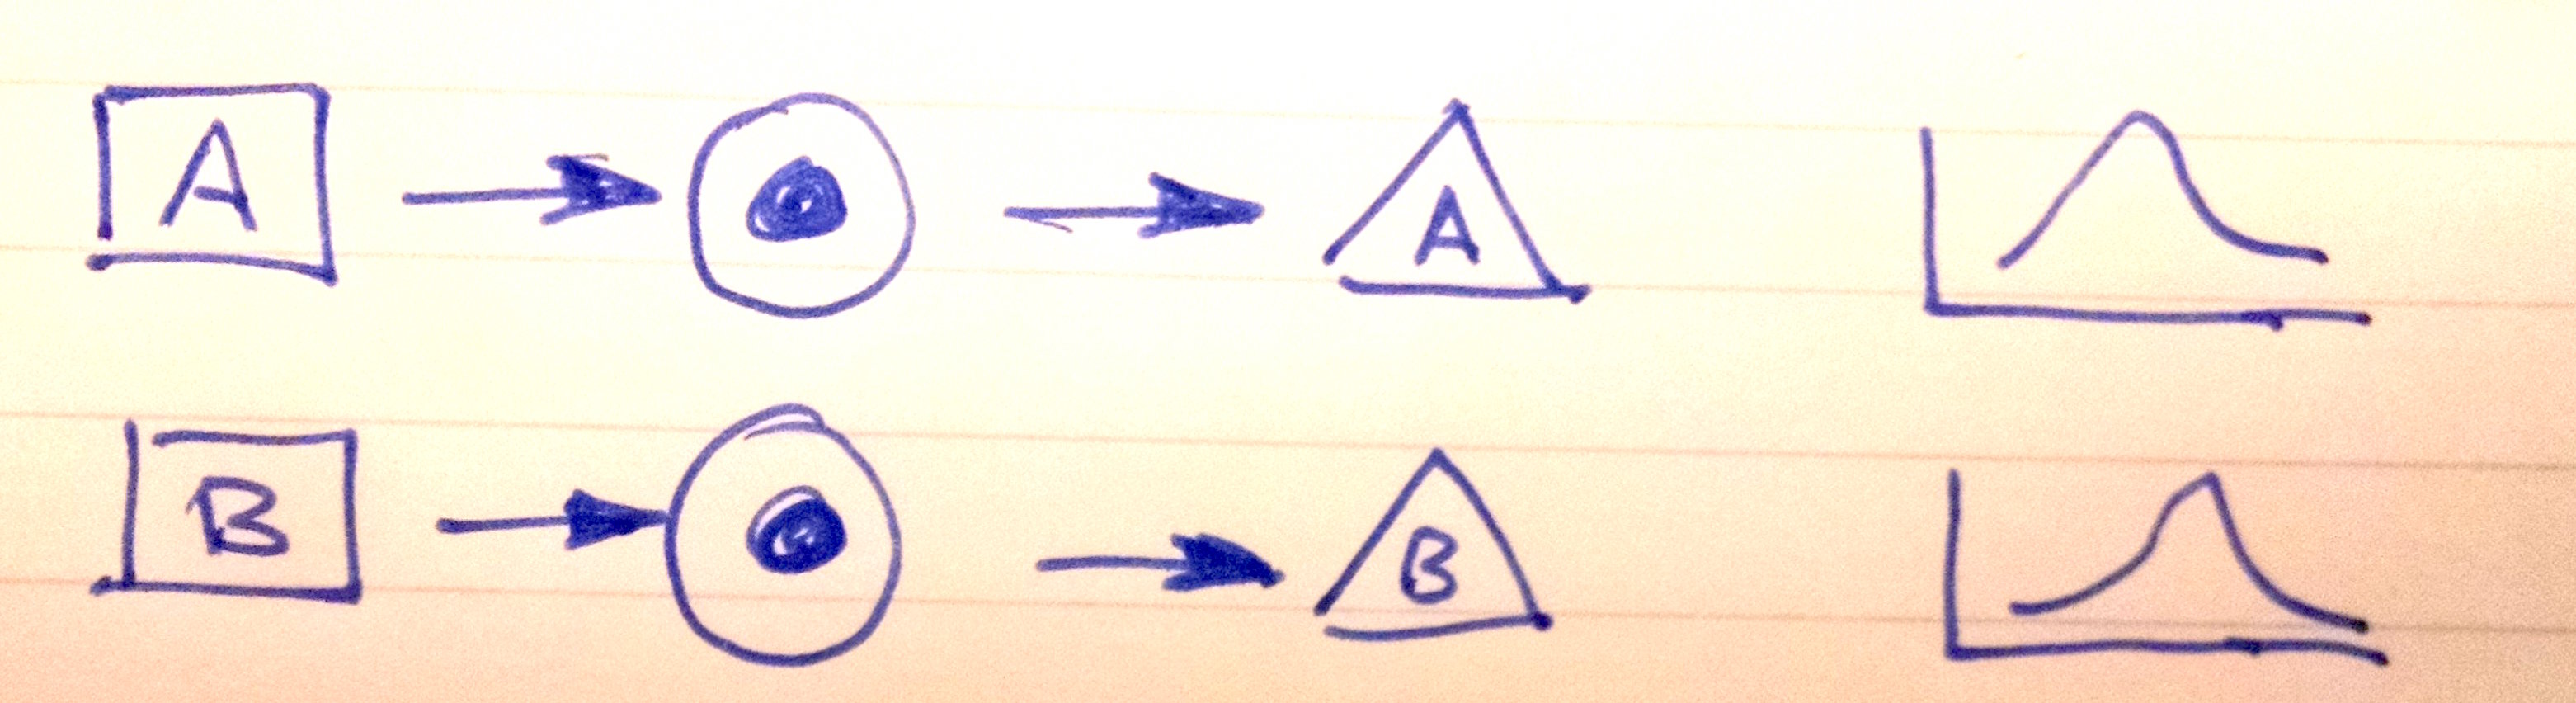 A A
B B